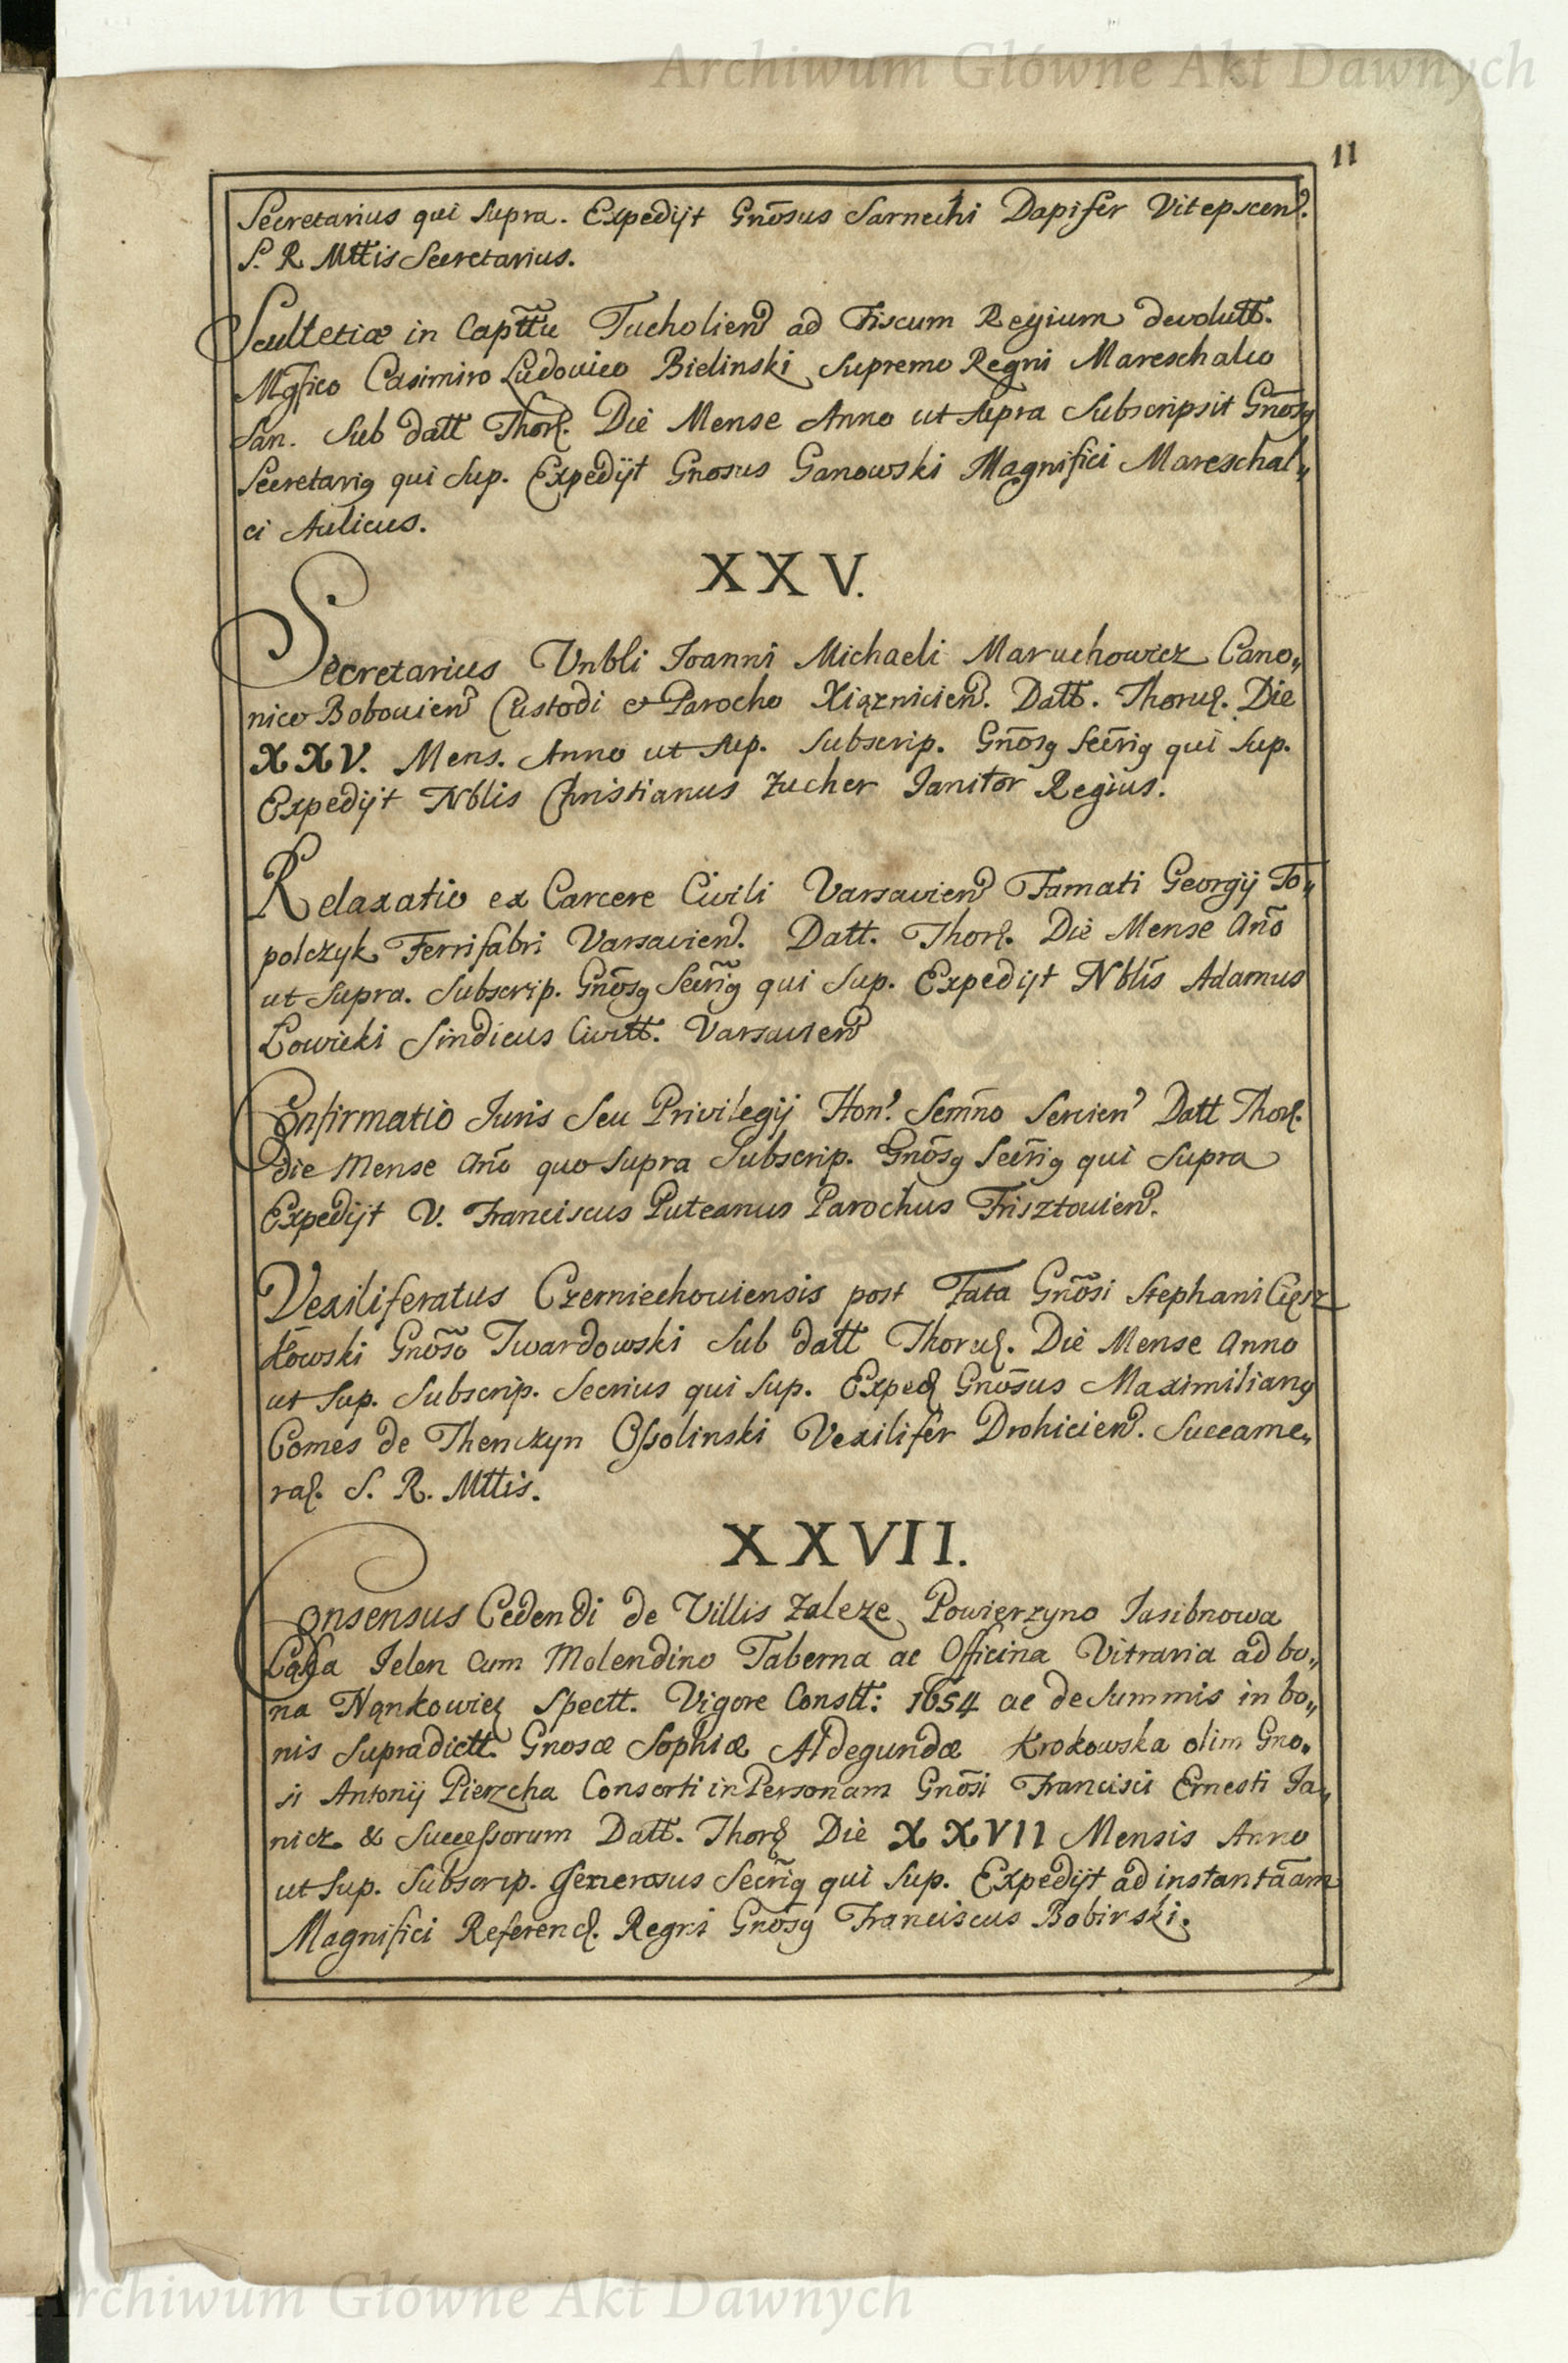 Archiwum Główne Akt Dawnych
11
Secretarius qui supra. Expedijt Gnōsus Sarnecki Dapifer Vitepscen.
S. R. Mttis Secretarius.
Scultetiæ in Capttu Tucholien ad Fiscum Regium devolutt.
Mgfico Casimiro Ludovico Bielinski Supremo Regni Mareschalco
San. Sub datt Thor. Die Mense Anno ut supra Subscripsit Gnōsq
Secretariq qui sup. Expedijt Gnosus Ganowski Magnifici Mareschal„
ci Aulicus.
XXV.
Secretarius Vnbli Joanni Michaeli Maruchowicz Cano„
nico Bobovien Custodi et Parocho Xiąznicien. Datt. Thorun. Die
XXV. Mens. Anno ut sup. Subscrip. Gnōsq Secriq qui sup.
Expedijt Nblis Christianus Zucher Janitor Regius.
Relaxatio ex Carcere Civili Varsavien Famati Georgij To„
polczyk Ferrifabri Varsavien. Datt. Thor. Die Mense Anō
ut supra. Subscrip. Gnōsq Secriq qui sup. Expedijt Nblis Adamus
Łowicki Sindicus Civitt. Varsavien
Confirmatio Juris seu Privilegij Hon. Semno Servien Datt Thor.
die Mense Anō quo supra Subscrip. Gnōsq Secriq qui supra
Expedijt V. Franciscus Puteanus Parochus Frisztovien.
Vexiliferatus Czerniechoviensis post Fata Gnōsi Stephani Cięsz
kowski Gnōso Twardowski sub datt Thorun. Die Mense Anno
ut sup. Subscrip. Secrius qui sup. Exped Gnōsus Maximilianq
Comes de Thenczyn Ossolinski Vexilifer Drohicien. Succame„
ral. S. R. Mttis.
XXVII.
Consensus Cedendi de Villis Zaleze Powierzyno Jasibnowa
Jelen cum Molendino Taberna ac Officina Vitraria ad bo„
na Nąnkowicz spectt. Vigore Constt: 1654 ac de summis in bo„
nis supradictt. Gnosæ Sophiæ Aldegundæ Krokowska olim Gno„
si Antonij Pierzcha Consorti in Personam Gnōsi Francisci Ernesti Ja„
nicz & Successorum Datt. Thor Die XXVII Mensis Anno
ut sup. Subscrip. Generosus Secriq qui sup. Expedijt ad instantāam
Magnifici Referend. Regni Gnōsq Franciscus Bobirski.
Archiwum Główne Akt Dawnych